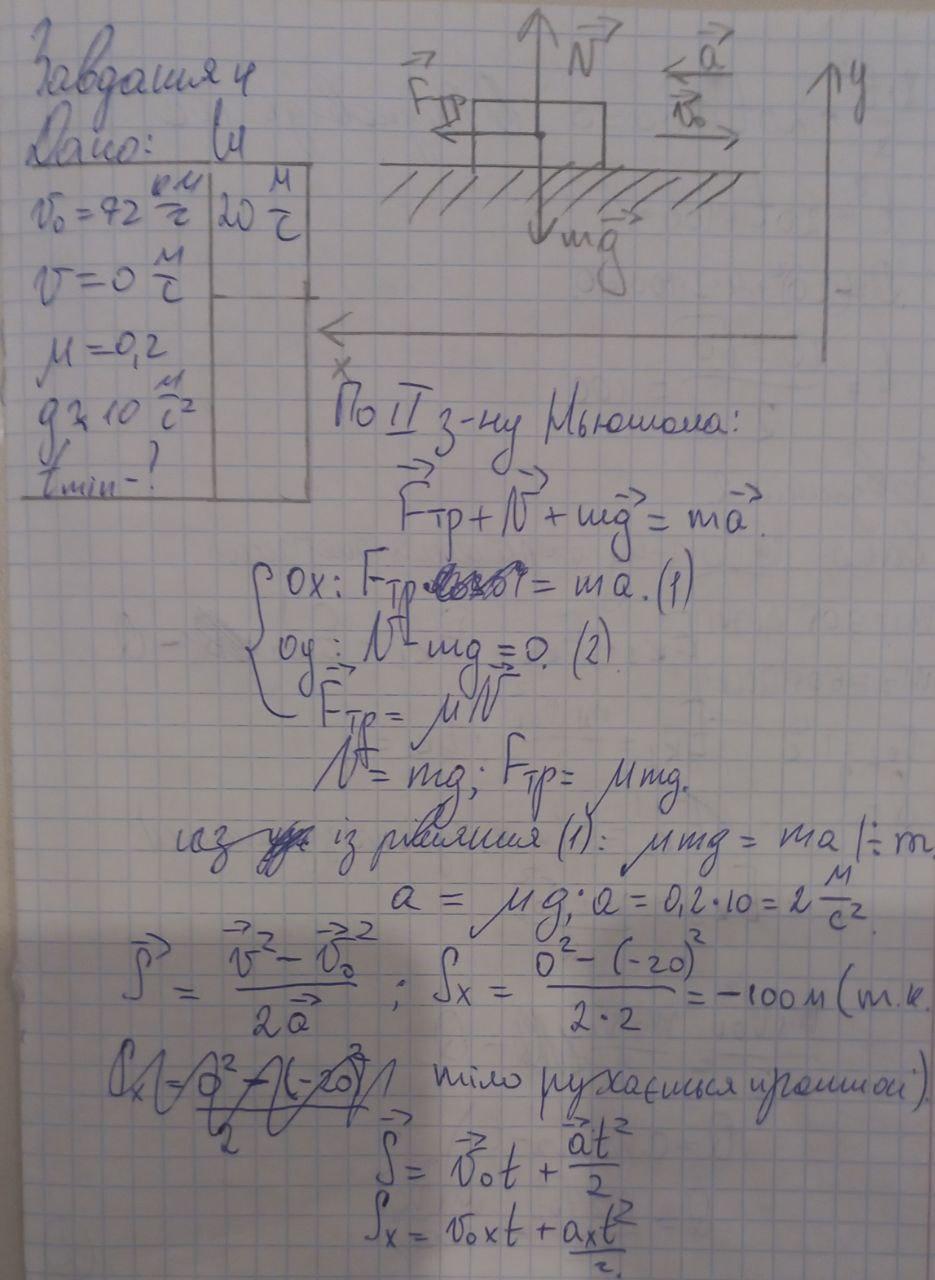 Завдання 4
Дано: | СИ
v₀ = 72 км/г | 20 м/с
v = 0 м/с
μ = 0,2
g ≈ 10 м/с²
t min - ?
N⃗
a⃗
F⃗тр
v⃗₀
y
mg⃗
x
По II з-ну Ньютона:
F⃗тр + N⃗ + mg⃗ = ma⃗.
ox: Fтр = ma. (1)
oy: N - mg = 0. (2)
F⃗тр = μN⃗
N = mg; Fтр = μmg.
із рівняння (1): μmg = ma |÷ m.
a = μg; a = 0,2·10 = 2 м/с².
S⃗ = (v⃗² - v⃗₀²)/(2a⃗) ; Sx = (0² - (-20)²)/(2·2) = -100 м (т.к.
Sx = (0² - (-20)²)/2 тіло рухається проти осі).
S⃗ = v⃗₀t + a⃗t²/2
Sx = v₀xt + axt²/2